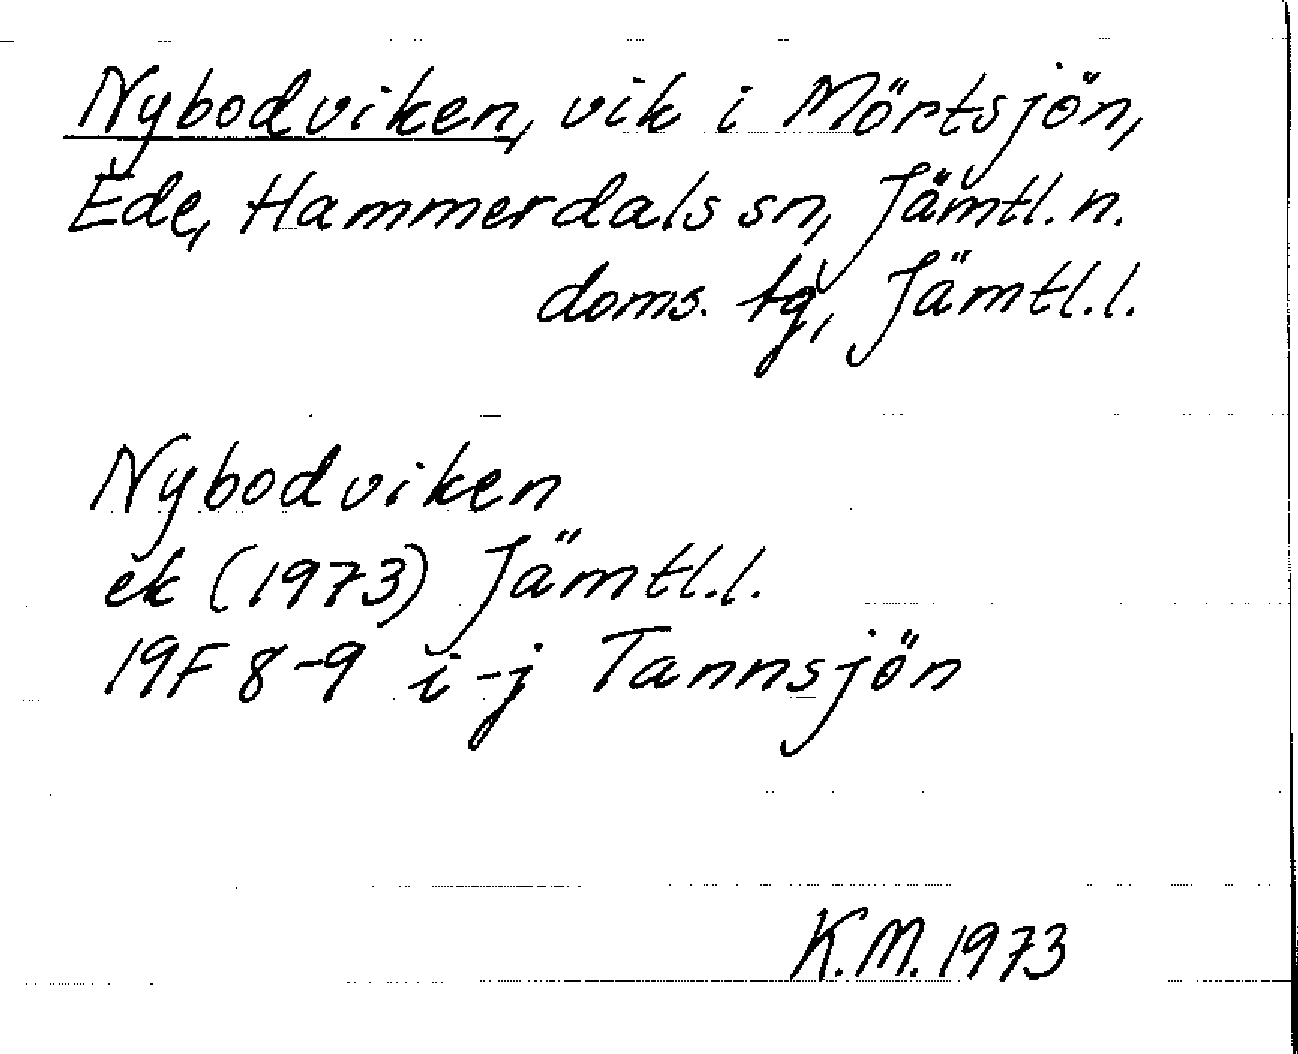 Nybodviken, vik i Mörtsjön,
Ede, Hammerdals sn, Jämtl. n.
doms. tg, Jämtl. l.
Nybodviken
ek (1973) Jämtl. l.
19F 8-9 i-j Tannsjön
K.M. 1973